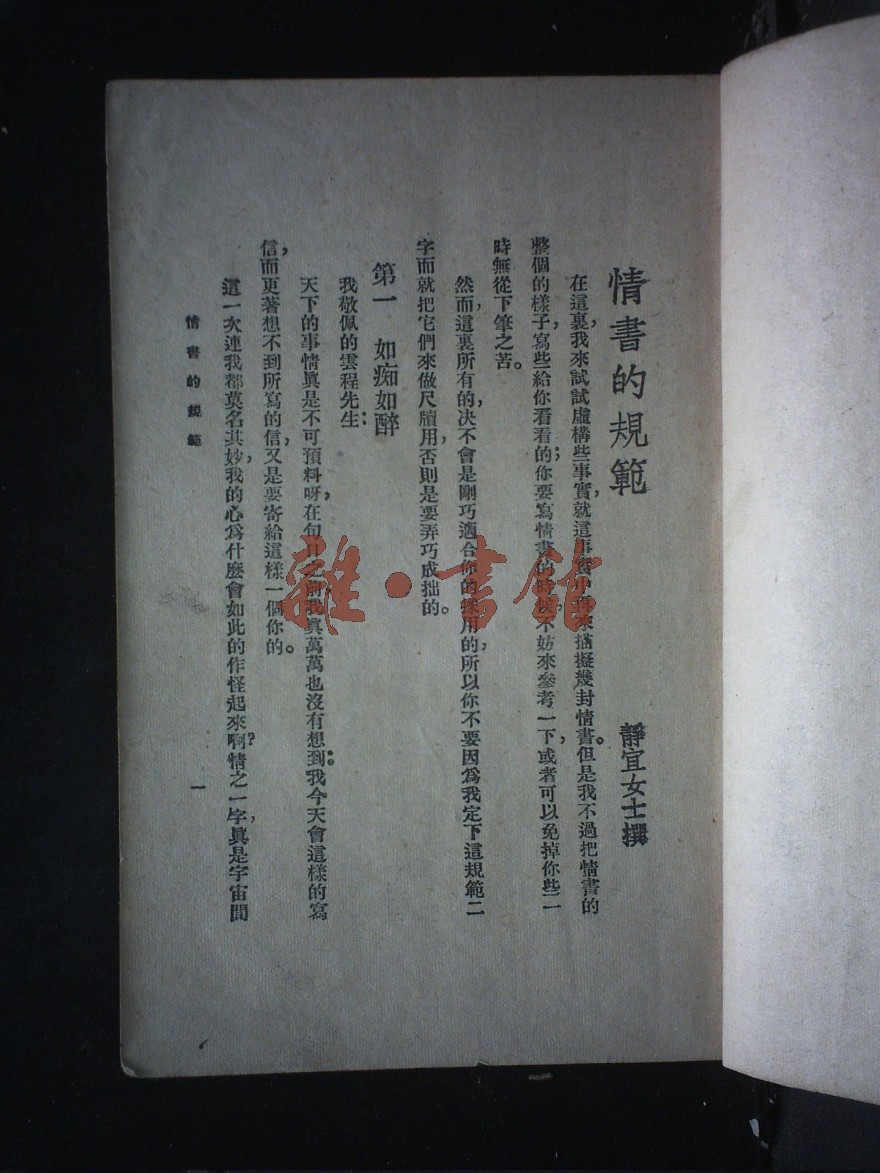 情書的規範
靜宜女士撰
在這裏，我來試試虛構些事實，就這事實中再來描擬幾封情書。但是我不過把情書的
整個的樣子，寫些給你看看的；你要寫情書的時候，不妨來參考一下，或者可以免掉你些一
時無從下筆之苦。
然而，這裏所有的，决不會是剛巧適合你的採用的，所以你不要因爲我定下這規範二
字而就把它們來做尺牘用，否則是要弄巧成拙的。
第一　如痴如醉
我敬佩的雲程先生：
天下的事情眞是不可預料呀，在旬日之前，我眞萬萬也沒有想到：我今天會這樣的寫
信，而更著想不到所寫的信，又是要寄給這樣一個你的。
這一次連我都莫名其妙，我的心爲什麼會如此的作怪起來啊？情之一字，眞是宇宙間
情書的規範
一
雜·書館